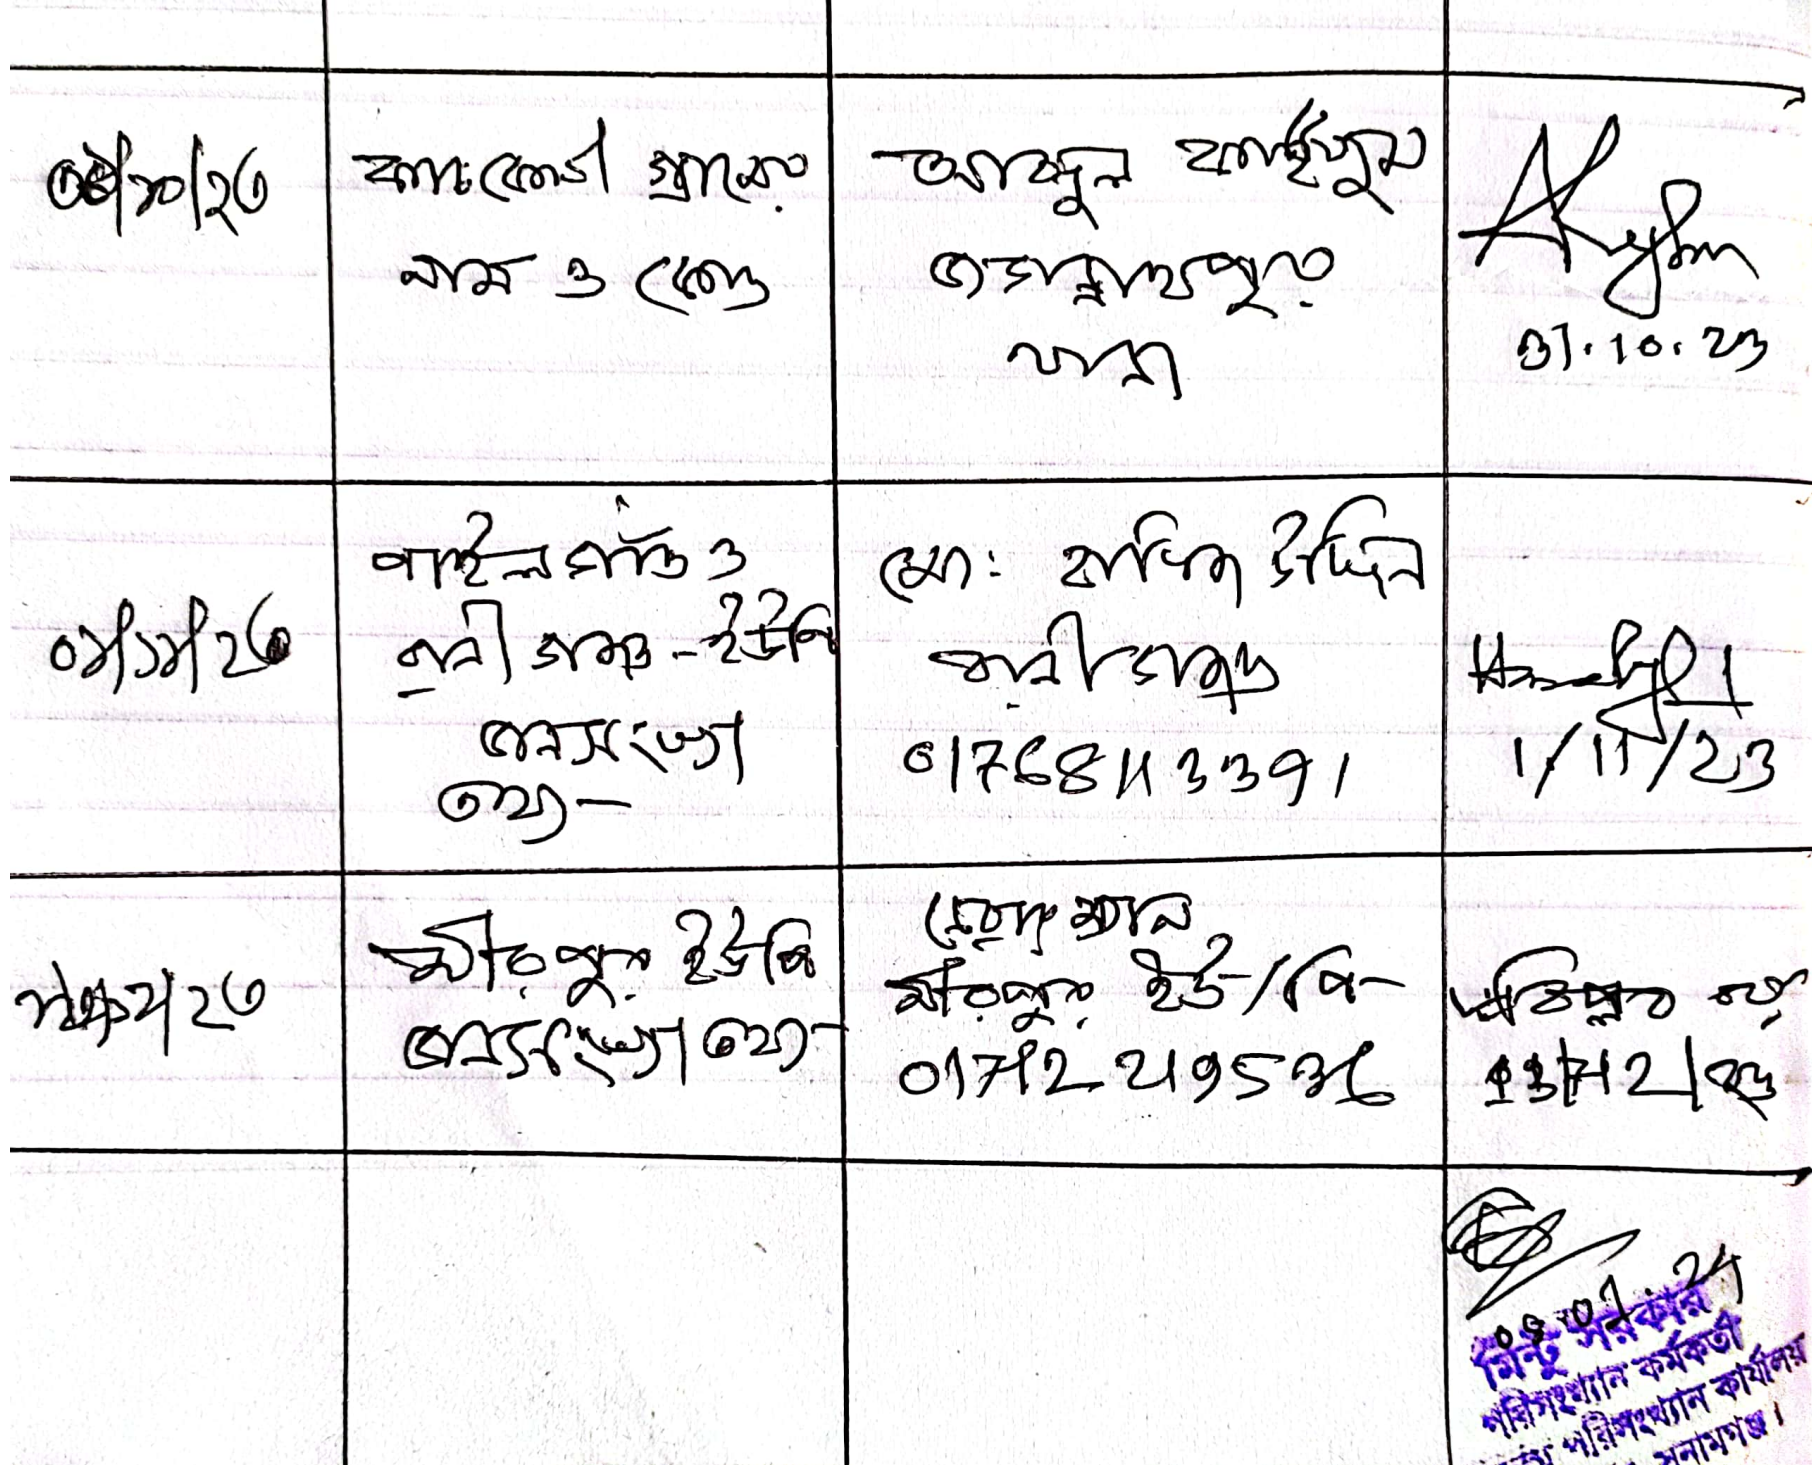 ৩১/১০/২৩
গ্রামের
নাম ও কোড
আব্দুল কাইয়ুম
জগন্নাথপুর
থানা
31.10.23
০১/১১/২৩
পাইলগাঁও ও
রানীগঞ্জ - ইউপি
জনসংখ্যা
তথ্য -
মো: উদ্দিন
রানীগঞ্জ
01768113391
1/11/23
/২৩
মীরপুর ইউপি
জনসংখ্যা তথ্য -
মীরপুর ইউ/পি-
01712219536
24
মিন্টু সরকার
পরিসংখ্যান কর্মকর্তা
পরিসংখ্যান কার্যালয়
সুনামগঞ্জ।